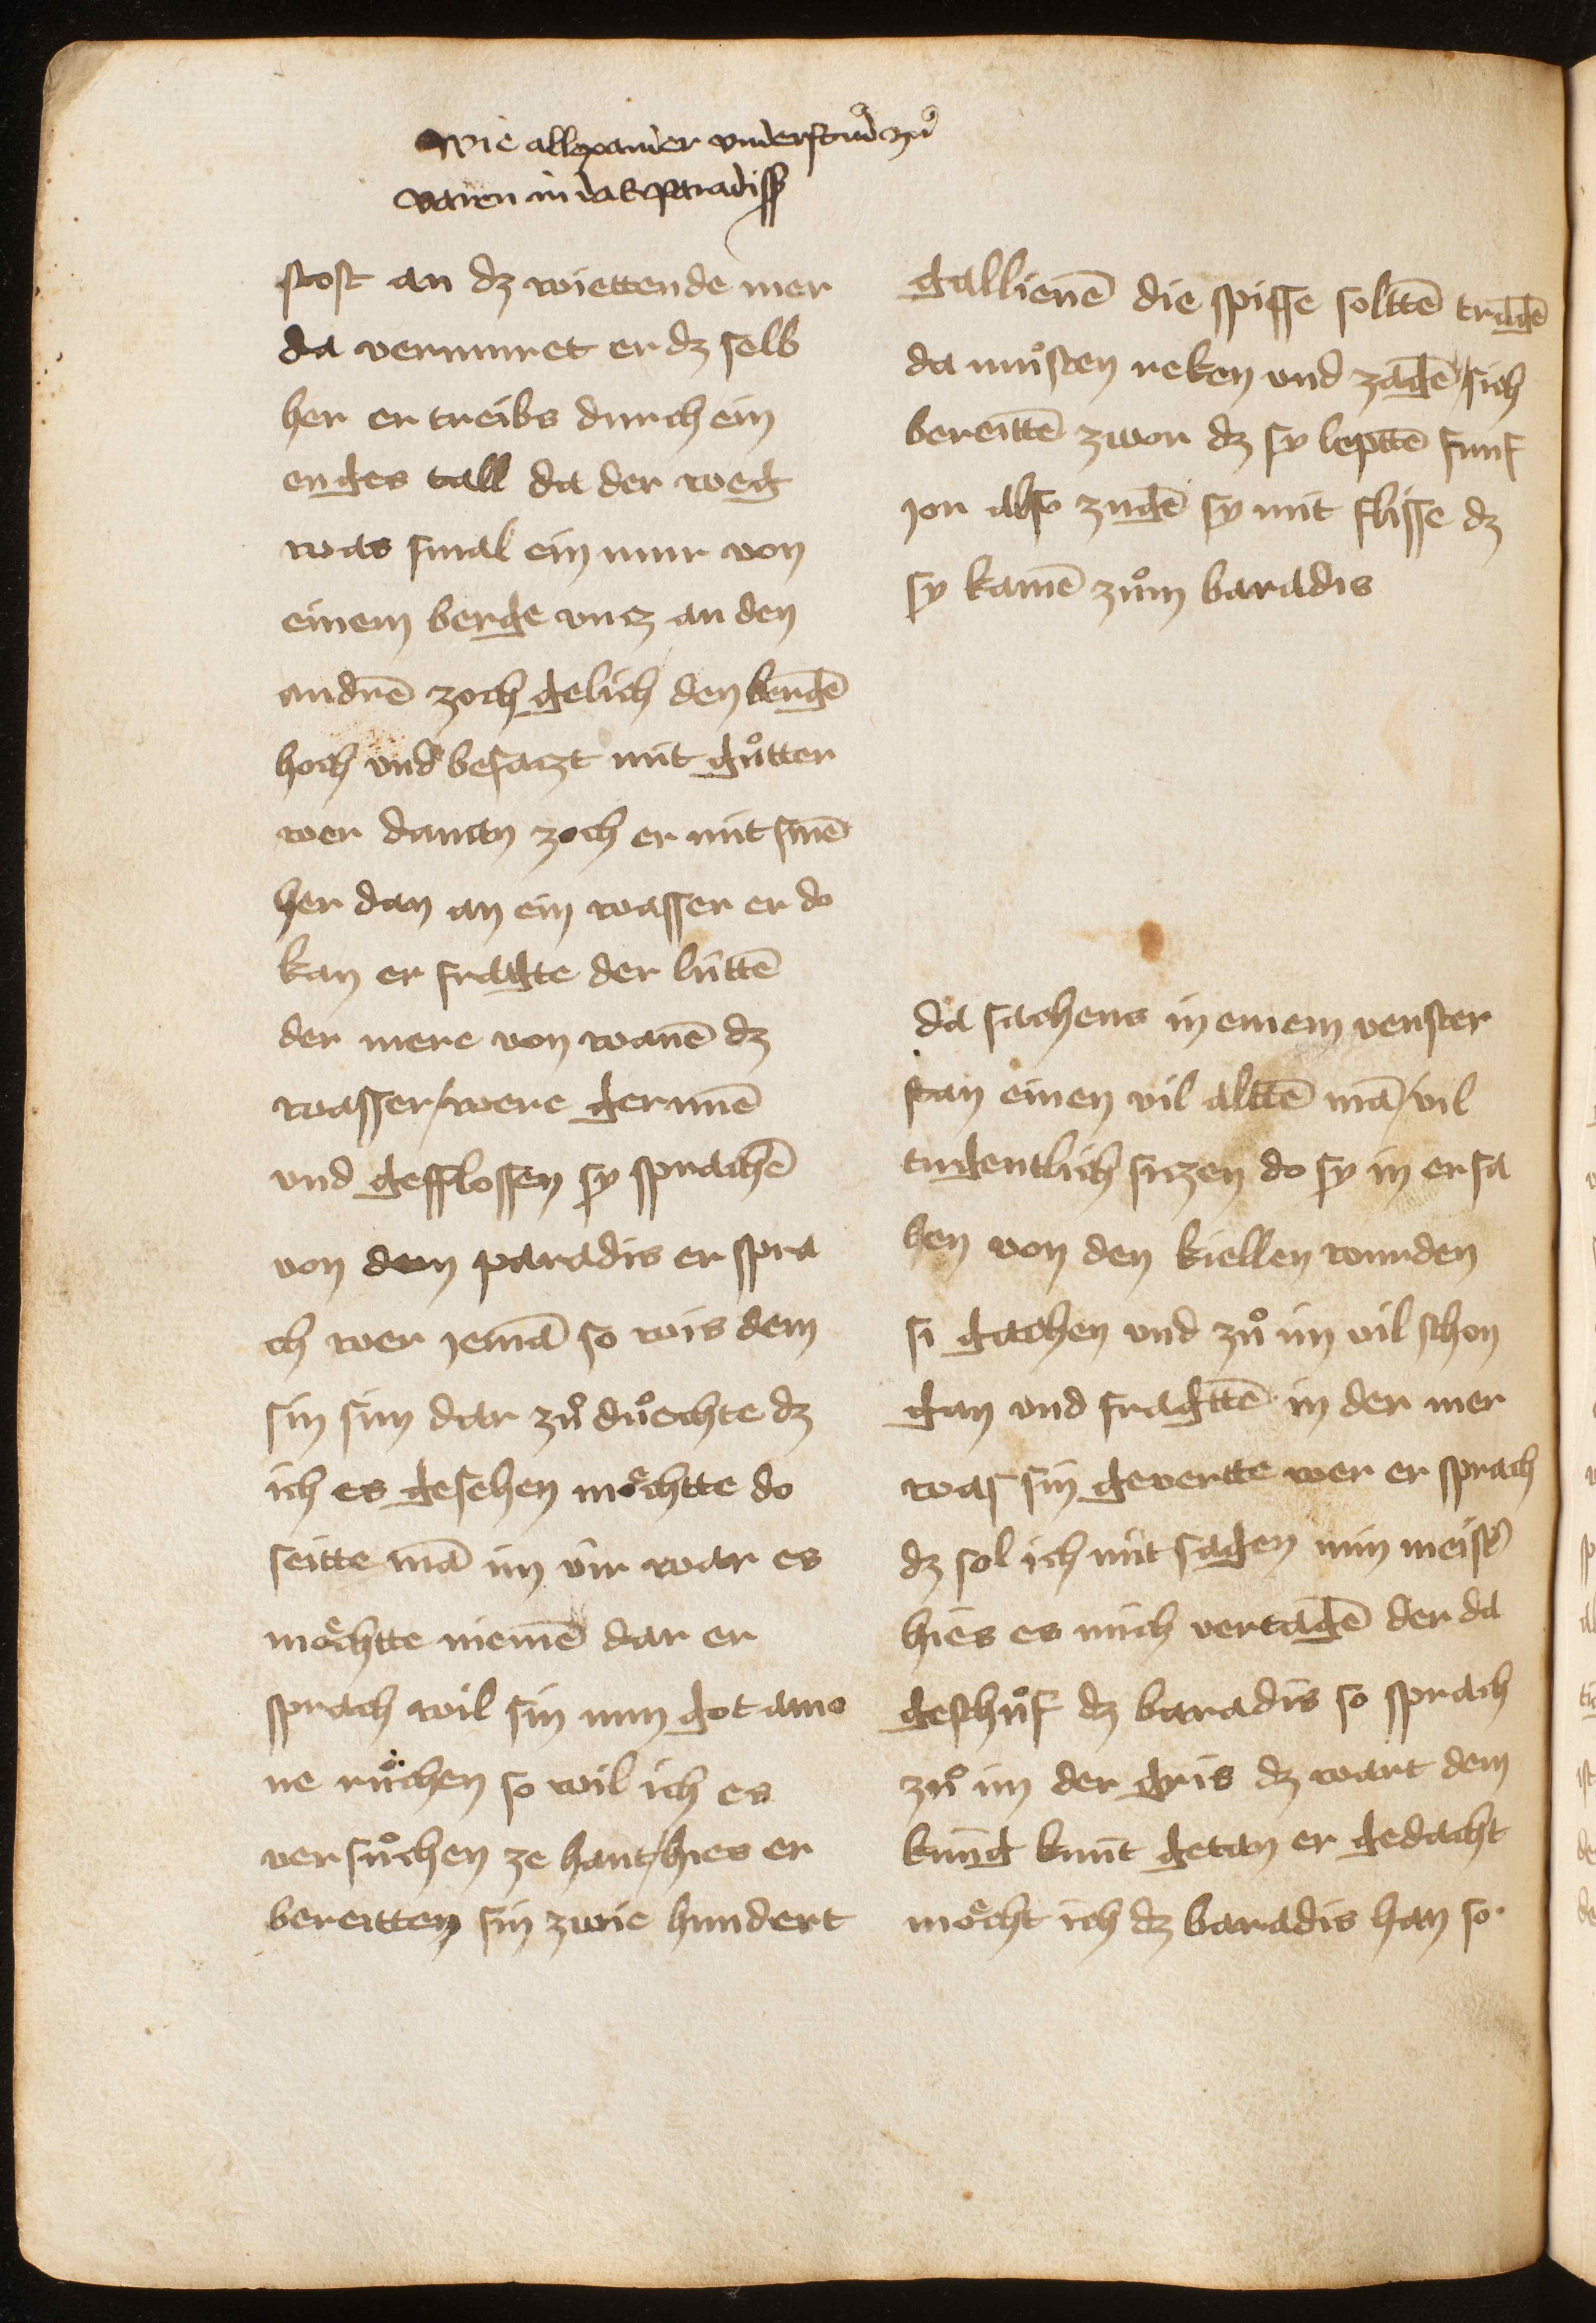 Wie allexander vnderstuͦd zuͦ
varen in das paradiss
stost an dz wiettende mer
da vermuret er dz selb
her er treibs durch ein
enges tall da der weg
was smal ein mur von
einem berge vncz an den
andrē zoch gelich den bergē
hoch vnd besaczt mit guͦtter
wer danan zoch er mit sinē
her dan an ein wasser er do
kan er fragte der lüttē
der mere von wanē dz
wasser / were gerunē
vnd gefflossen sy sprachē
von dem paradis er spra
ch wer iemā so wis dem
sin sin dar zuͦ duͦchte dz
ich es gesehen moͤchtte do
seitte mā im vür war es
moͤchtte niemē dar er
sprach wil sin min got amo
ne ruͦchen so wil ich es
versuͦchen ze hant / hies er
bereitten sin zwie hundert
gallienē die spisse solttē tragē
da muͦsten reken vnd zagē / sich
bereittē zwor dz sy lepttē funf
jor also zugē sy mit flisse dz
sy kamē zuͦm baradis
da sachens in einem venster
stan einen vil alttē mā / vil
tugentlich siczen do sy in ersa
hen von den kiellen wurden
si gachen vnd zuͦ im vil schon
gan vnd fragttē in der mer
was sin gevertte wer er sprach
dz sol ich nüt sagen min meist̉
hies es mich vertagē der da
geschuͦf dz baradis so sprach
zuͦ im der gris dz wart dem
küng kunt getan er gedacht
moͤcht ich dz baradis han so